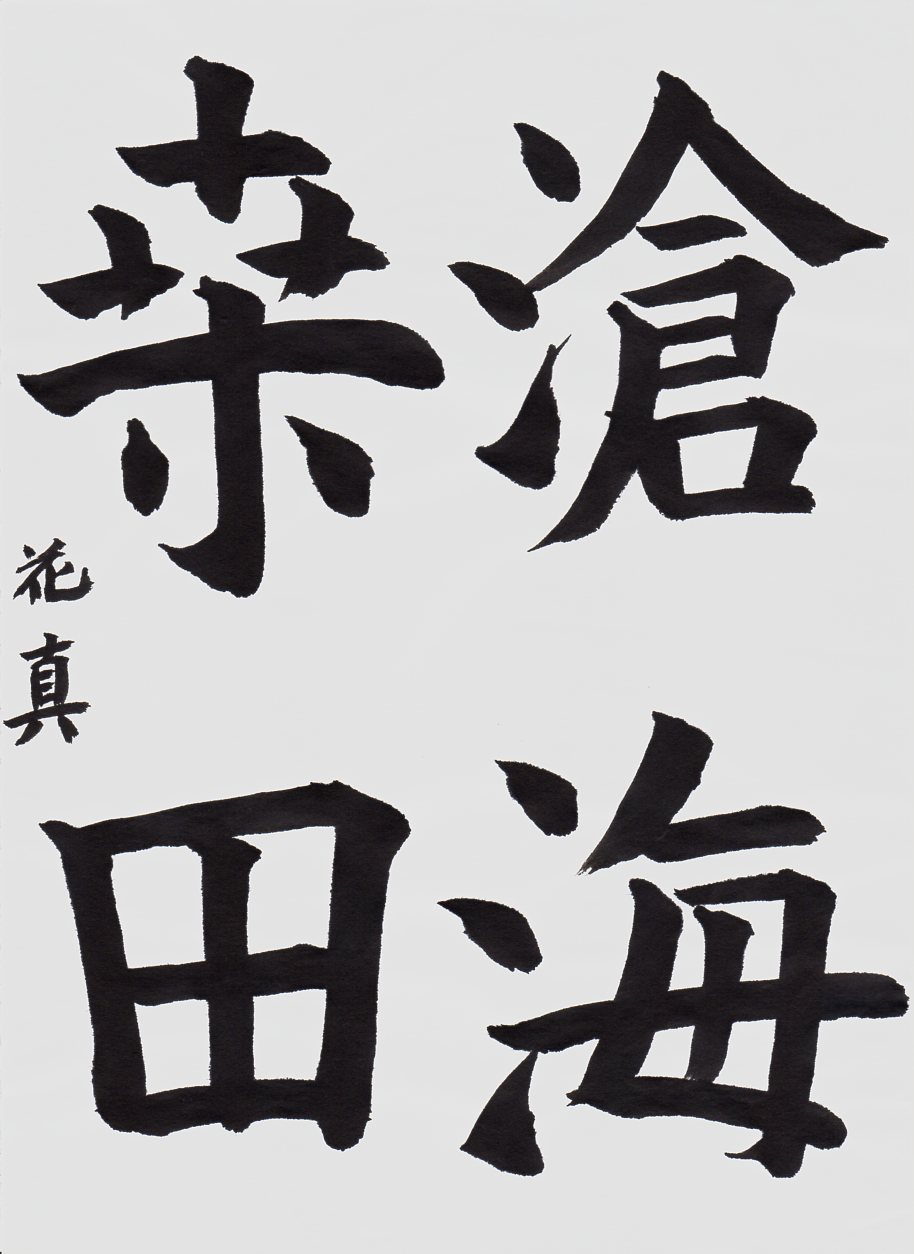 滄海
桒田
花真